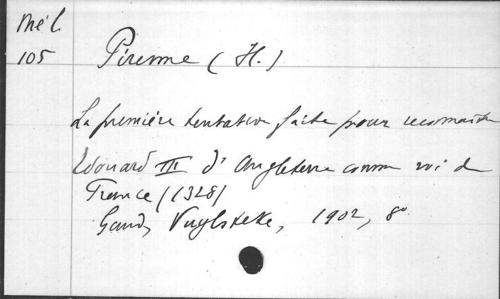 Mél.
105
Pirenne (H.)
La première tentative faite pour reconnaître
Edouard III d'Angleterre comme roi de
France (1328)
Gand, Vuylsteke, 1902, 8°